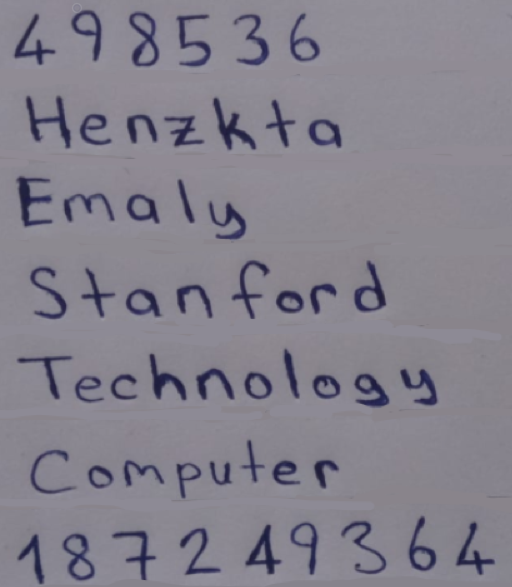 498536
Henzkta
Emaly
Stanford
Technology
Computer
187249364